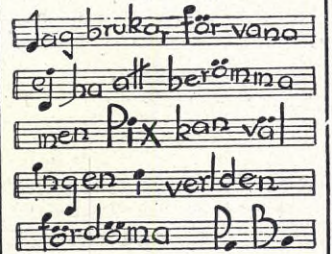 Jag brukar för vana
ej ha att berömma
men Pix kan väl
ingen i verlden
fördöma P. B.